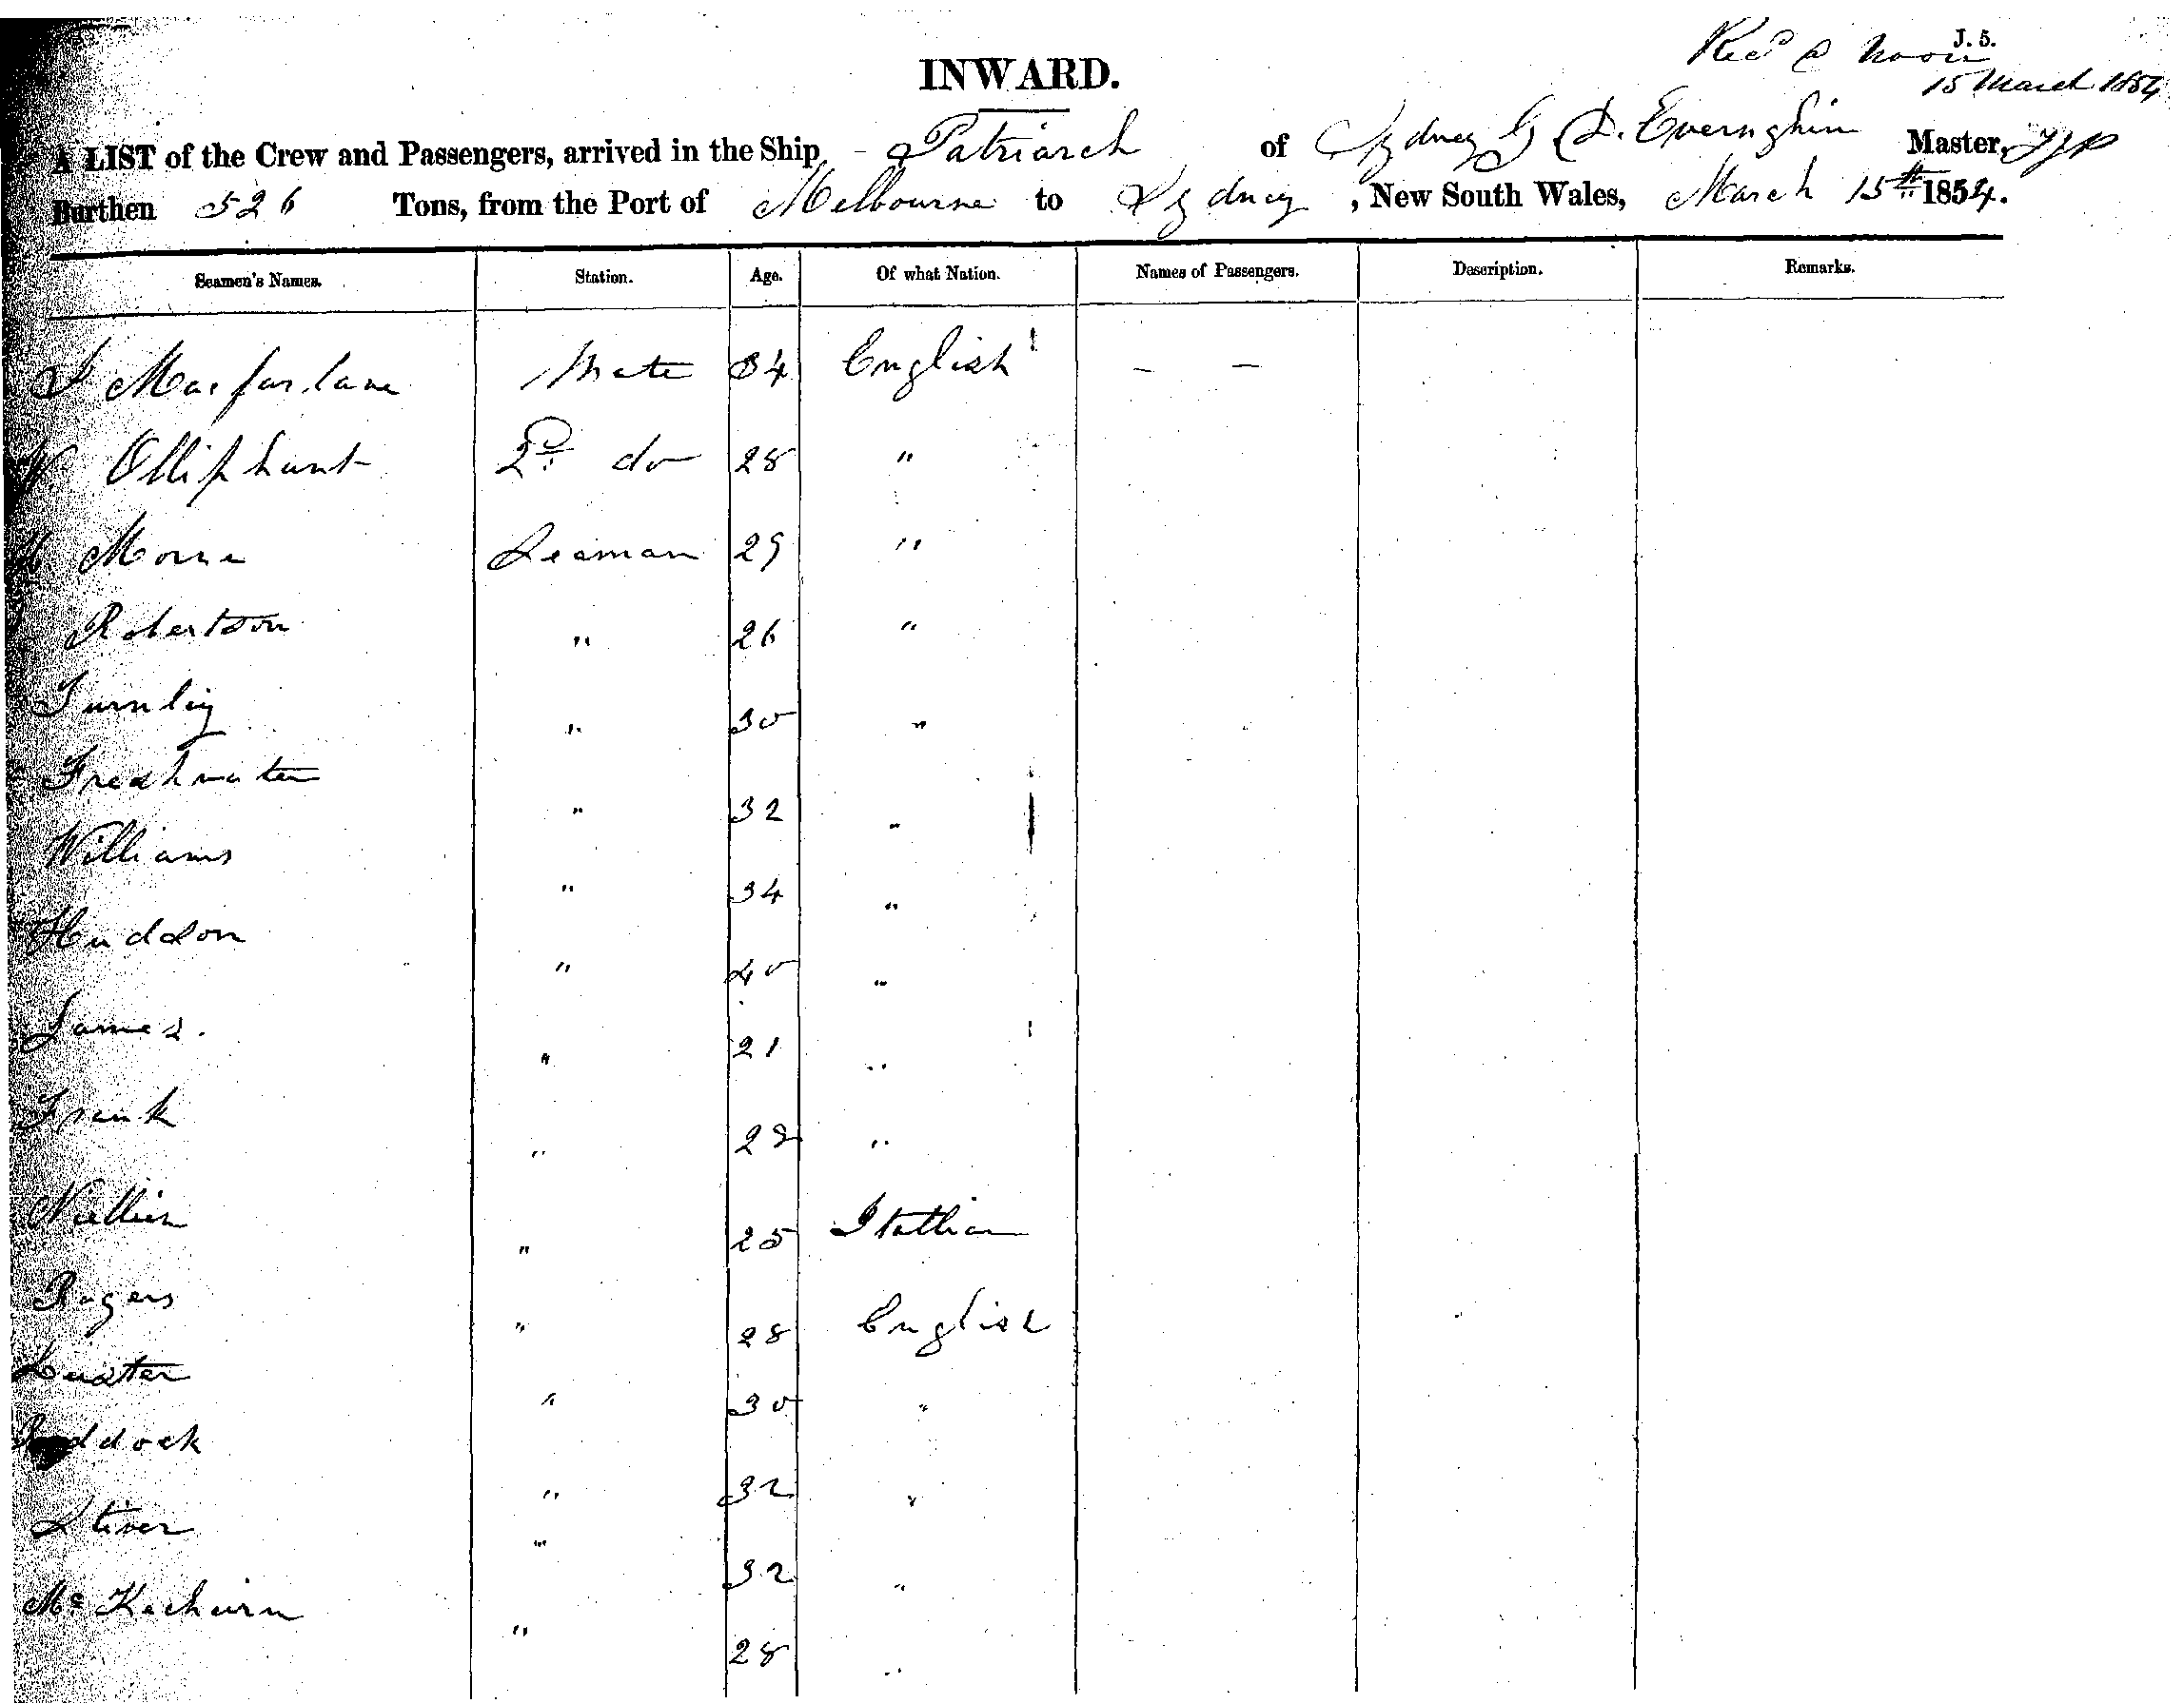 J. 5.
Recd @ noon
15 March 1854
INWARD.
A LIST of the Crew and Passengers, arrived in the Ship Patriarch of Sydney G. D. Evernghim Master,
Burthen 526 Tons, from the Port of Melbourne to Sydney, New South Wales, March 15th 1854.
Seamen's Names. Station. Age. Of what Nation. Names of Passengers. Description. Remarks.
Macfarlane Mate 34 English - -
W. Olliphant 2d do 28 "
Seaman 29 "
Robertson " 26 "
Turnley " 30 "
Freshwater " 32 "
Williams " 34 "
Hudson " 40 "
James. " 21 "
Frank " 28 "
" 25 Itallian
Rogers " 28 English
" 30 "
" 32 "
Stiver " 32 "
Mc Kechirn " 28 "